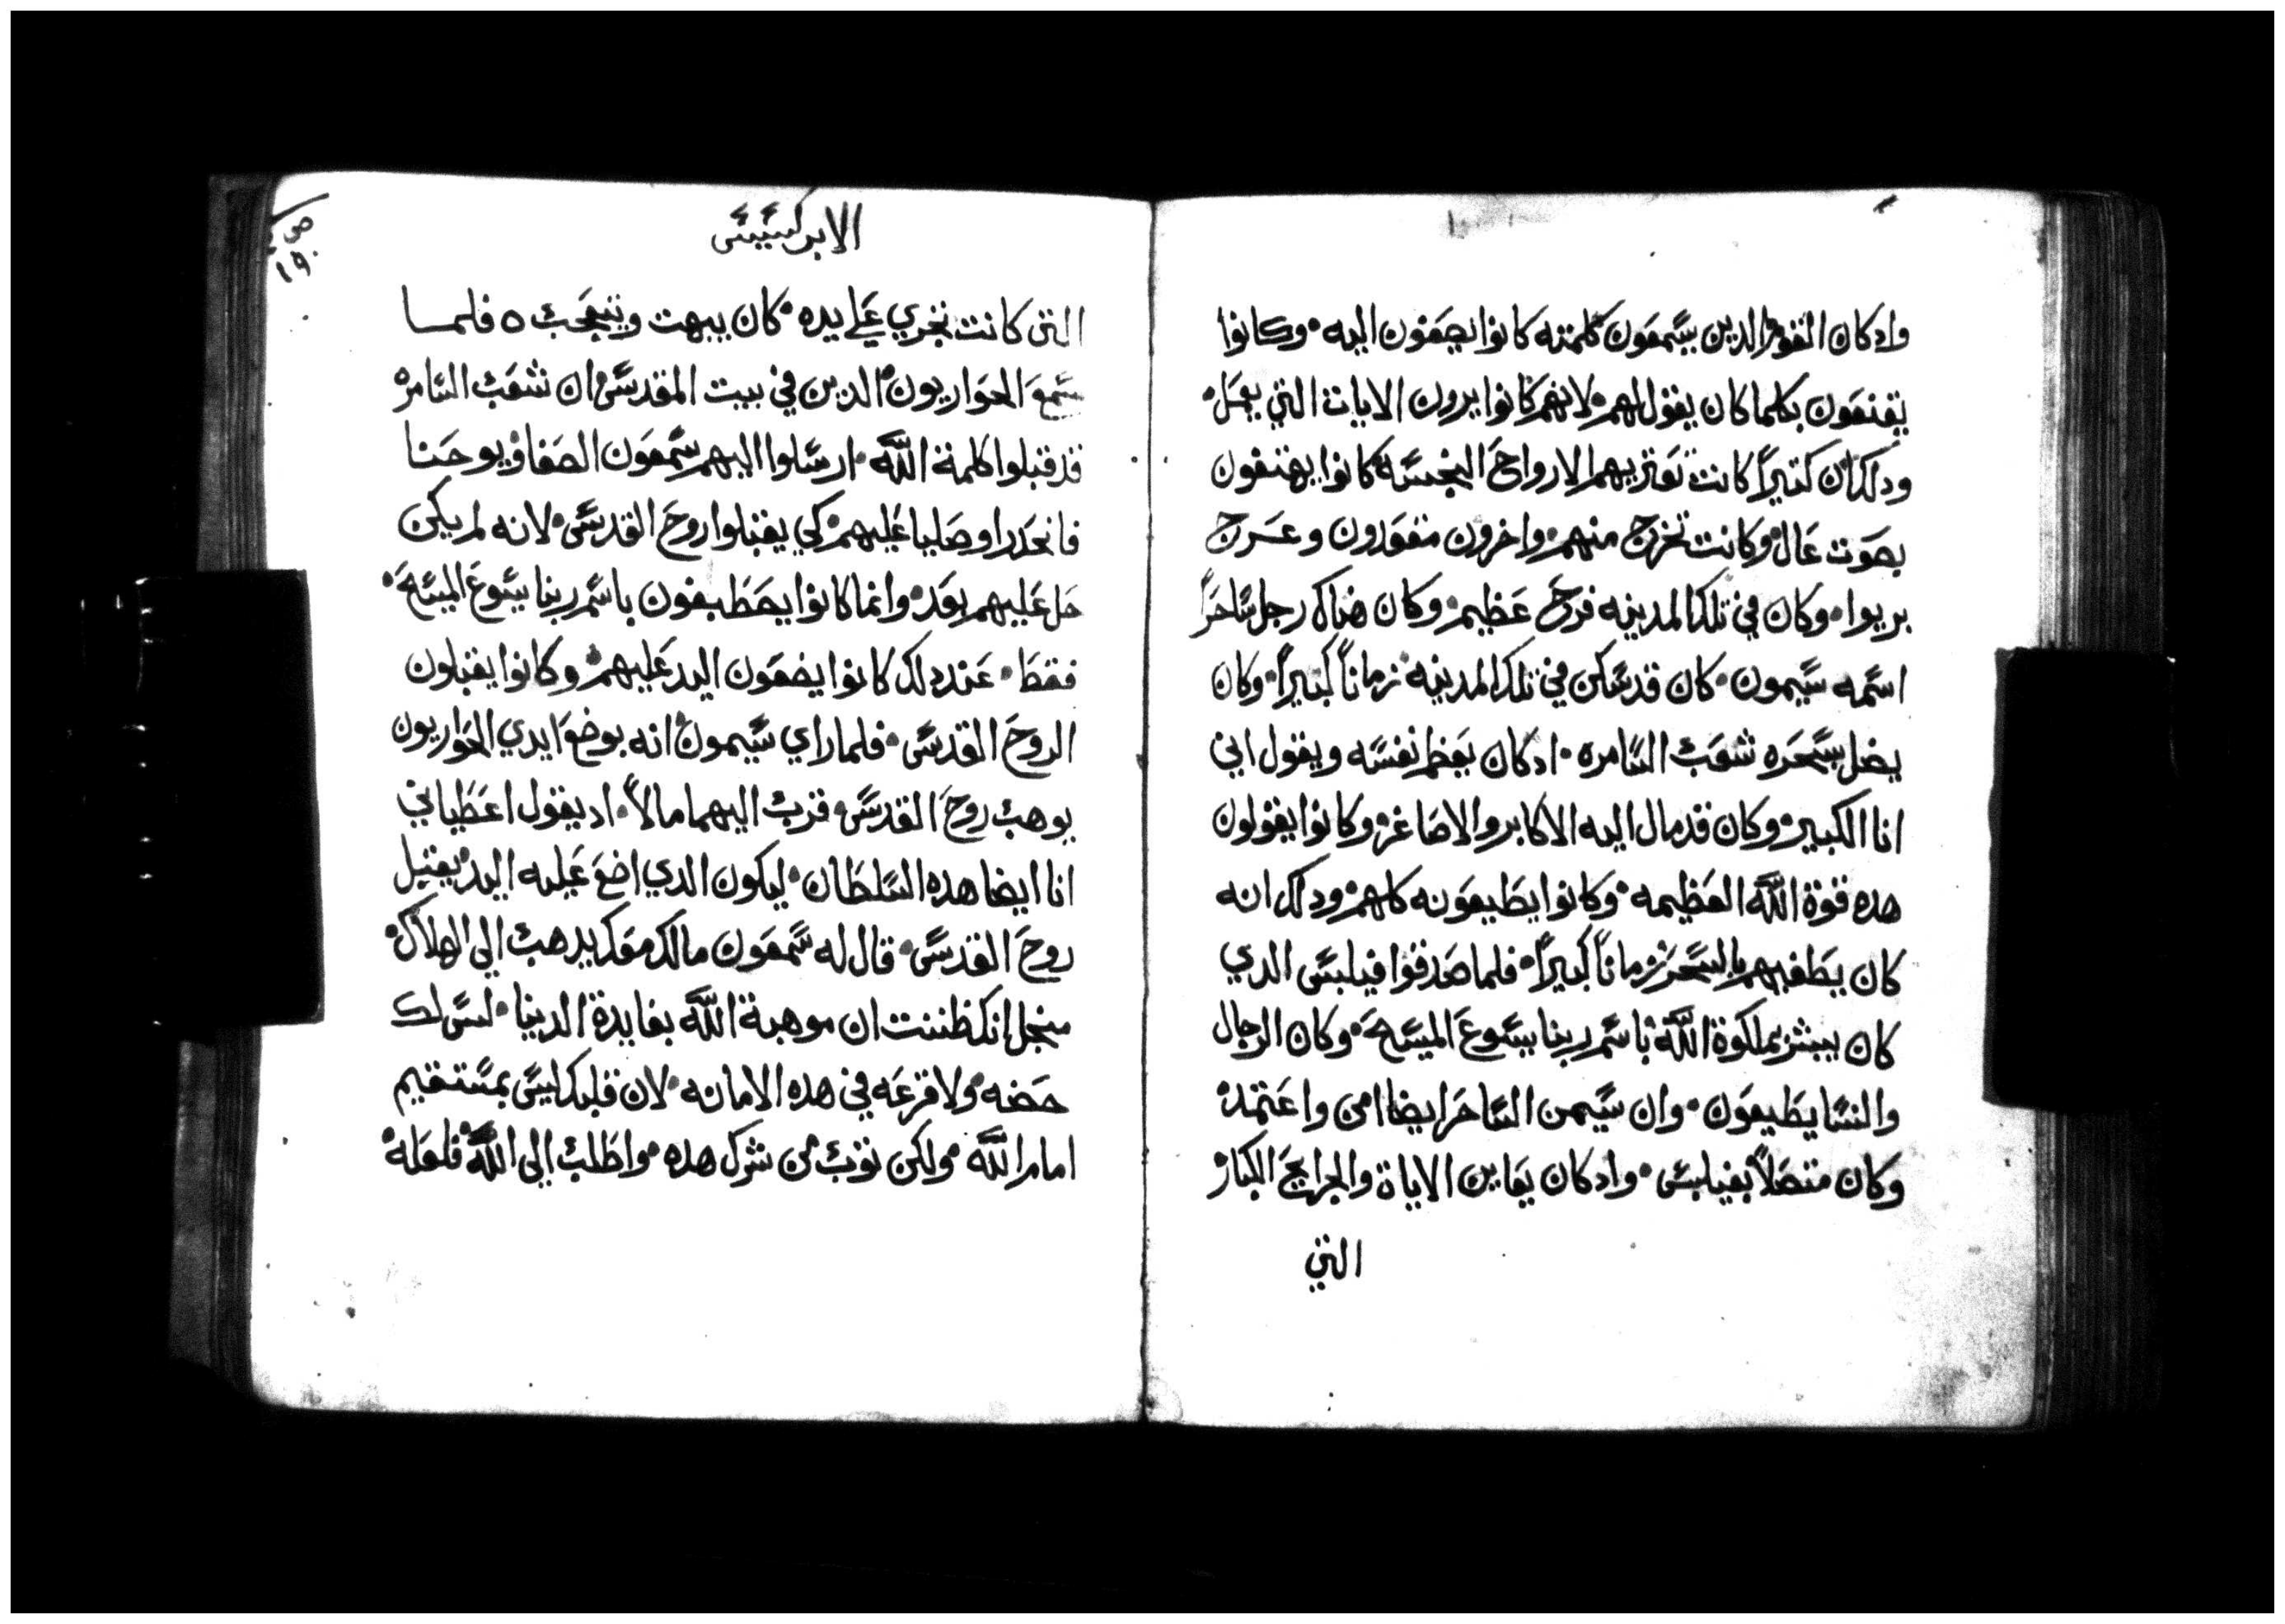 وادكان القوم الدين يسمعون كلمته كانوا يصغون اليه وكانوا
يقنعون بكلما كان يقول لهم لانهم كانوا يرون الايات التي يعمل
ودلك ان كتيراً كانت تعتريهم الارواح النجسه كانوا يهتفون
بصوت عال وكانت تخرج منهم واخرون مقعدون وعرج
بريوا وكان في تلك المدينه فرح عظيم وكان هناك رجل ساحراً
اسمه سيمون كان قد سكن في تلك المدينه زماناً كبيراً وكان
يضل بسحره شعب السامره ادكان يعظم نفسه ويقول اني
انا الكبير وكان قد مال اليه الاكابر والاصاغر وكانوا يقولون
هده قوة اللّه العظيمه وكانوا يطيعونه كلهم ودلك انه
كان يطغيهم بالسحر زماناً كبيراً فلما صدقوا فيلبس الدي
كان يبشر بملكوة اللّه باسم ربنا يسوع المسيح وكان الرجال
والنسا يطيعون وان سيمن الساحر ايضا امن واعتمد
وكان متصلاً بفيلبس وادكان يعاين الاياة والجرايح الكبار
التي
الابركسيس
التي كانت تجري على يده كان يبهت ويتعجب ه فلما
سمع الحواريون الدين في بيت المقدس ان شعب السامره
قد قبلوا كلمة اللّه ارسلوا اليهم سمعون الصفا ويوحنا
فانحدرا وصليا عليهم كي يقبلوا روح القدس لانه لم يكن
حل عليهم بعد وانما كانوا يصطبغون باسم ربنا يسوع المسيح
فقط عند دلك كانوا يضعون اليد عليهم وكانوا يقبلون
الروح القدس فلما راي سيمون انه بوضع ايدي الحواريون
يوهب روح القدس قرب اليهما مالاً اد يقول اعطياني
انا ايضا هده السلطان ليكون الدي اضع عليه اليد يقبل
روح القدس قال له سمعون مالك معك يدهب الي الهلاك
منجل انك ظننت ان موهبة اللّه بفايدة الدينا لسى لك
حضه ولا قرعه في هده الامانه لان قلبك ليس بمستقيم
امام اللّه ولكن توب من شرك هده واطلب الي اللّه فلعله